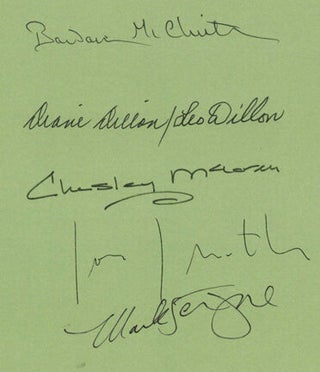 Barbara McClintock
Diane Dillon/Leo Dillon
Chesley McLaren
Jon J Muth
Mark Teague